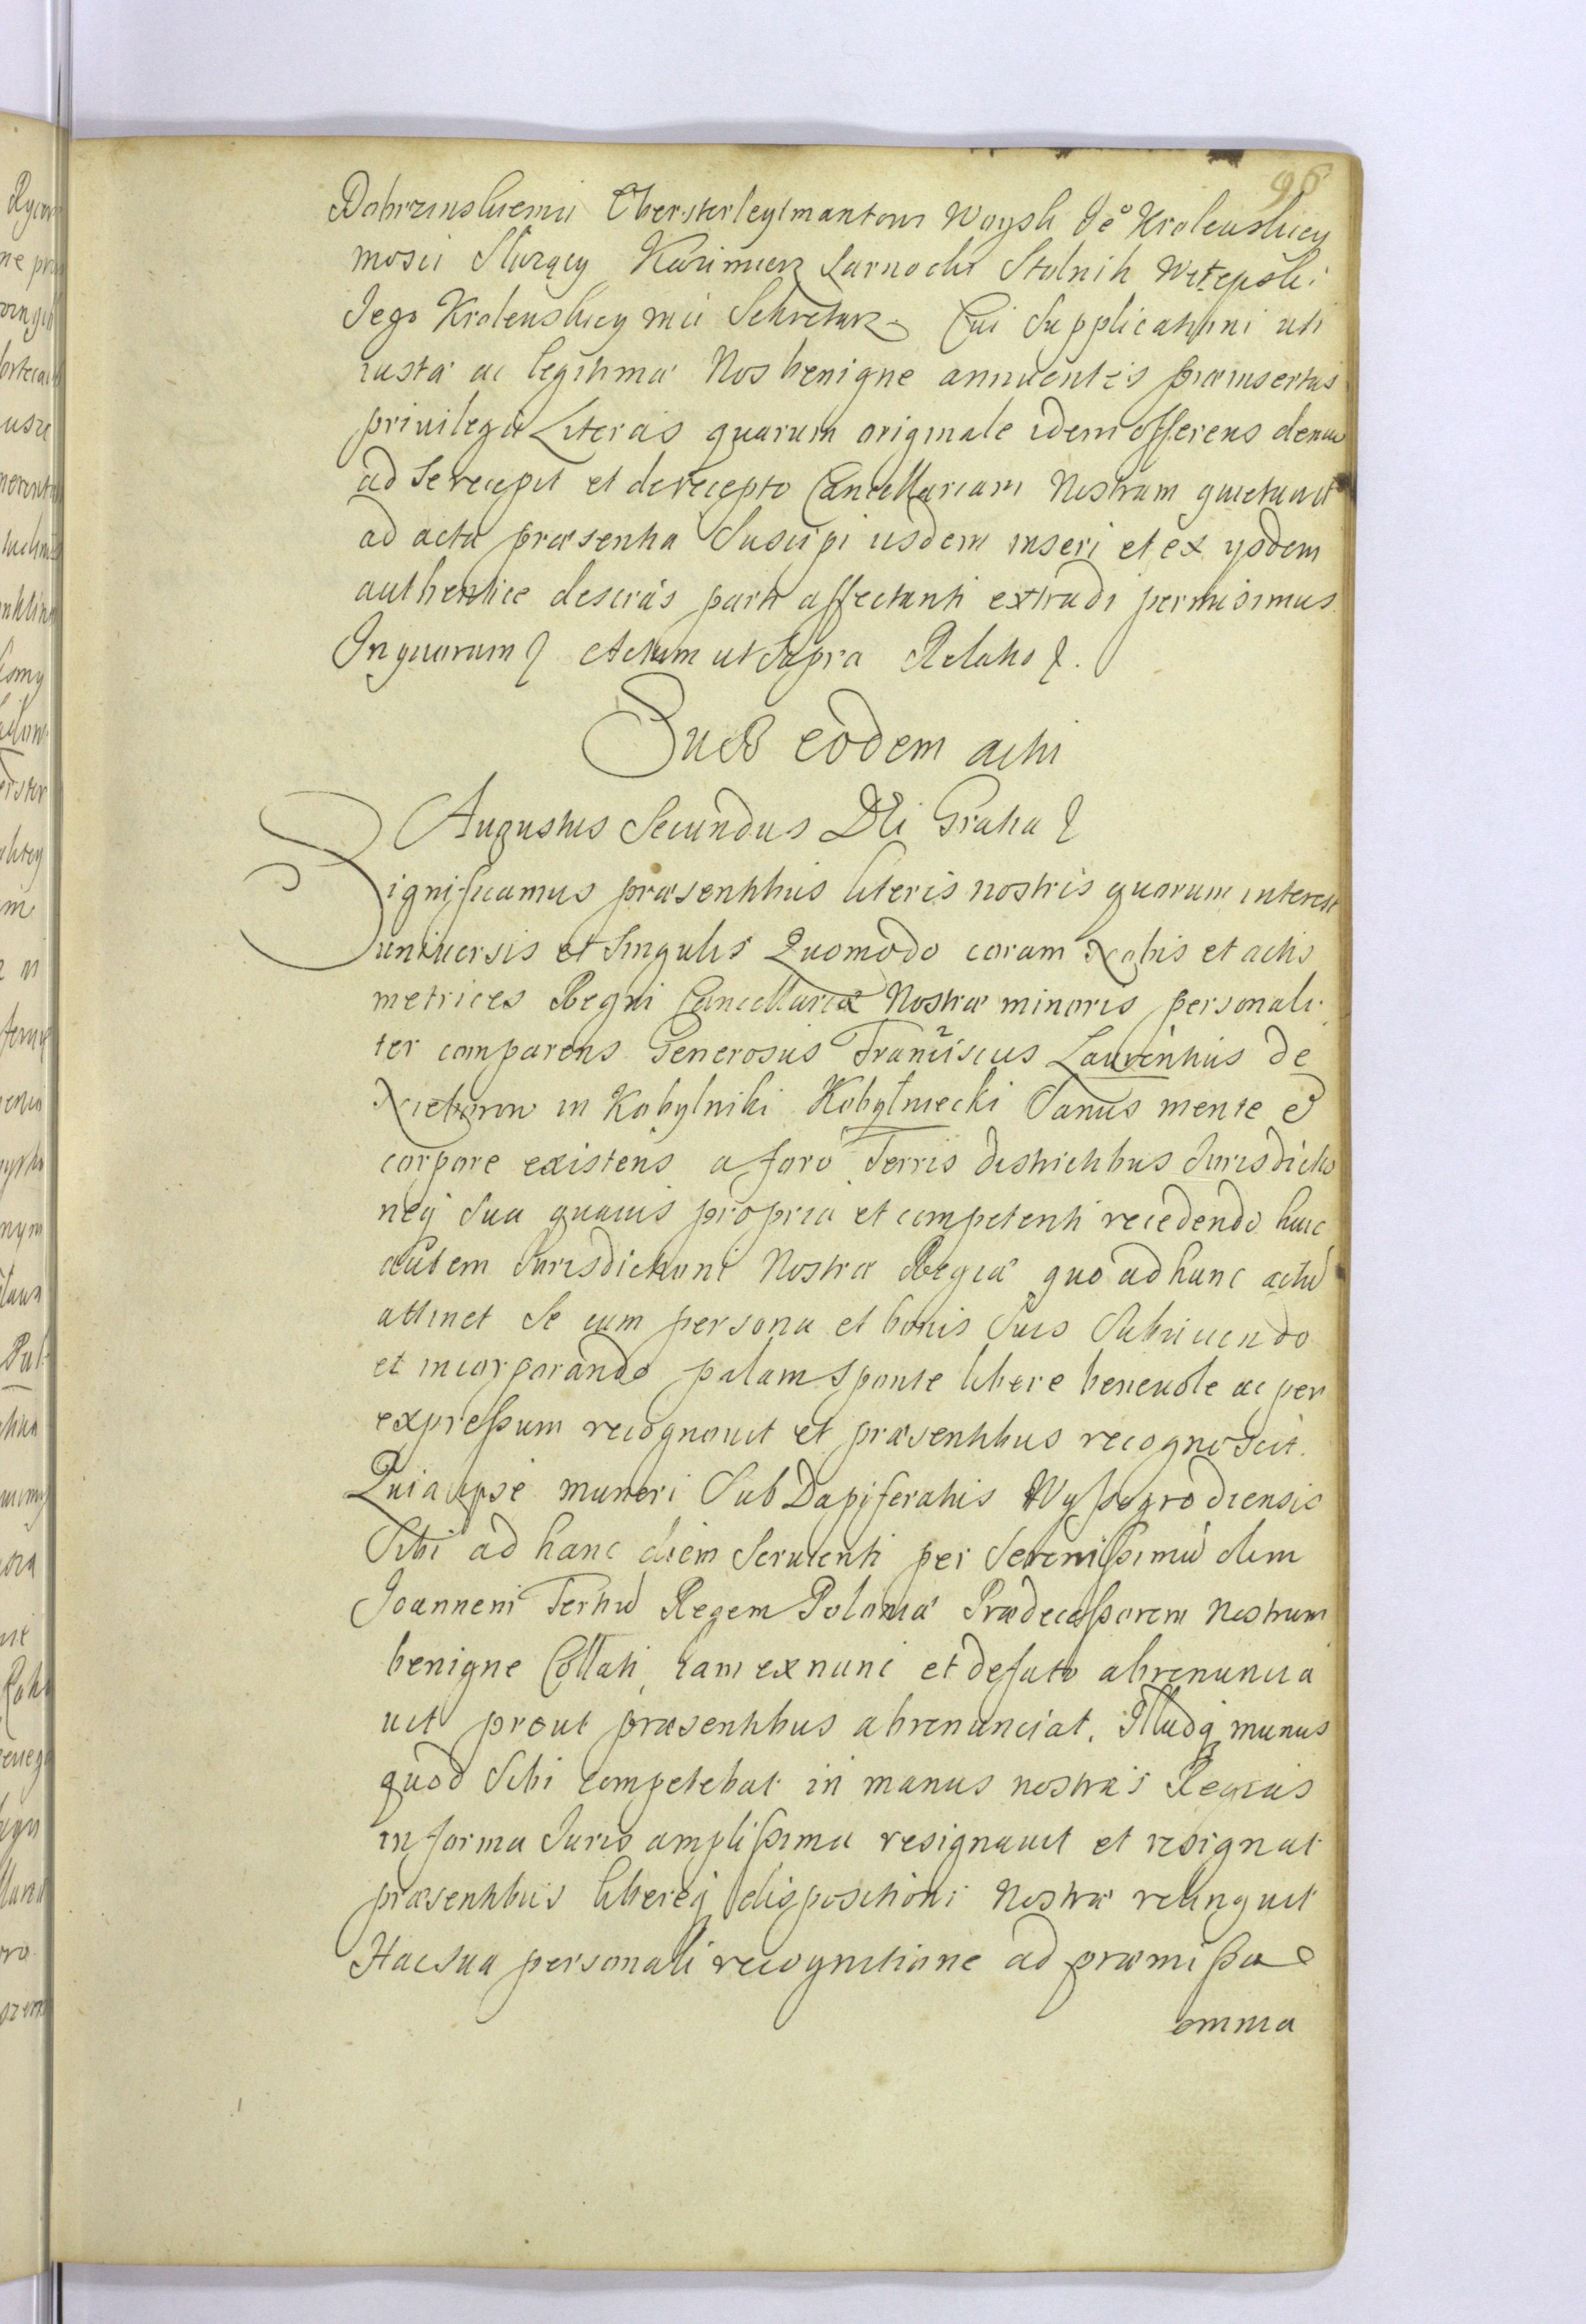 96
Dobrzinskiemu Obersterleytmantowi Woysk Je° Krolewskiey
mosci Sluzący Kazimierz Larnocki Stolnik Witepski
Jego Krolewskiey mci Sekretarz. Cui Supplicationi uti
iustæ ac legitimæ Nos benigne annuentes præinsertas
privilegii Literas quarum originale idem offerens denuo
ad Se recepit et de recepto Cancellariam Nostram quietavit
ad acta præsentia Suscipi iisdem inseri et ex ijsdem
authentice descriptas parti affectanti extradi permisimus.
In quorum Actum ut Supra Relatio
Sub eodem actu
Augustus Secundus Dei Gratia
Significamus præsentibus literis nostris quorum interest
universis et Singulis Quomodo coram Nobis et actis
metrices Regni Cancellariæ Nostræ minoris personali
ter comparens Generosus Franciscus Laurentius de
in Kobylniki Kobylniecki Sanus mente et
corpore existens a foro Terris districtibus Jurisdictio
neq Sua quavis propria et competenti recedendo huic
autem Jurisdictioni Nostræ Regiæ quo ad hunc actū
attinet Se cum persona et bonis Suis Subiiciendo
et incorporando palam Sponte libere benevole ac per
expressum recognovit et præsentibus recognoscit.
Quia ipse muneri SubDapiferatus Wyssogrodiensis
Sibi ad hanc diem Servienti per Serenissimū olim
Joannem Tertiū Regem Poloniæ Prædecessorem Nostrum
benigne Collati, iam ex nunc et de facto abrenuncia
vit prout præsentibus abrenunciat. Illudq munus
quod Sibi competebat in manus nostras Regias
in forma Juris amplissima resignavit et resignat
præsentibus libereq dispositioni Nostræ relinquit
Hac sua personali recognitione ad præmissa
omnia